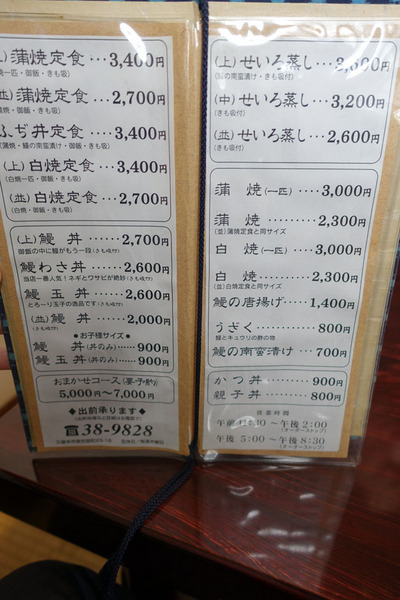 上)蒲焼定食 … 3,400円
焼一匹・御飯・きも吸)
(並)蒲焼定食 … 2,700円
焼・御飯・きも吸)
ふぢ丼定食 …… 3,400円
(蒲焼・鰻の南蛮漬け・御飯・きも吸)
(上)白焼定食 … 3,400円
(白焼一匹・御飯・きも吸)
(並)白焼定食 … 2,700円
(白焼・御飯・きも吸)
(上)鰻 丼 …… 2,700円
御飯の中に鰻がもう一段(きも吸付)
鰻わさ丼 …… 2,600円
当店一番人気!ネギとワサビが絶妙(きも吸付)
鰻玉丼 …… 2,600円
とろーり玉子の逸品です(きも吸付)
(並)鰻 丼 …… 2,000円
(きも吸付)
●お子様サイズ●
鰻 丼 (丼のみ) …… 900円
鰻玉丼 (丼のみ) …… 900円
おまかせコース(要予約)
5,000円〜7,000円
◆出前承ります◆
☎38-9828
(上)せいろ蒸し …
(鰻の南蛮漬け・きも吸付)
(中)せいろ蒸し … 3,200円
(きも吸付)
(並)せいろ蒸し … 2,600円
(きも吸付)
蒲 焼 (一匹) …… 3,000円
蒲 焼 ……… 2,300円
(並)蒲焼定食と同サイズ
白 焼 (一匹) …… 3,000円
白 焼 ……… 2,300円
(並)白焼定食と同サイズ
鰻の唐揚げ …… 1,400円
うざく ……… 800円
鰻とキュウリの酢の物
鰻の南蛮漬け … 700円
かつ丼 ……… 900円
親子丼 ……… 800円
営業時間
午前11:30〜午後2:00
(オーダーストップ)
午後 5:00〜午後8:30
(オーダーストップ)